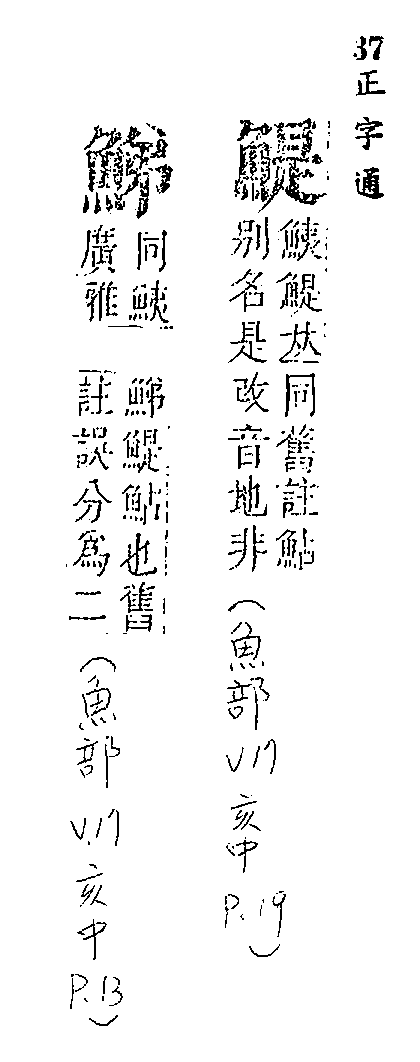 37正字通
鯷
鮧鯷𠀤同舊註鮎
別名是改音地非
(魚部 V17 亥中 P.19)
鮷
同鮧
廣雅
鮷鯷鮎也舊
註誤分爲二
(魚部 V.17 亥中 P.13)